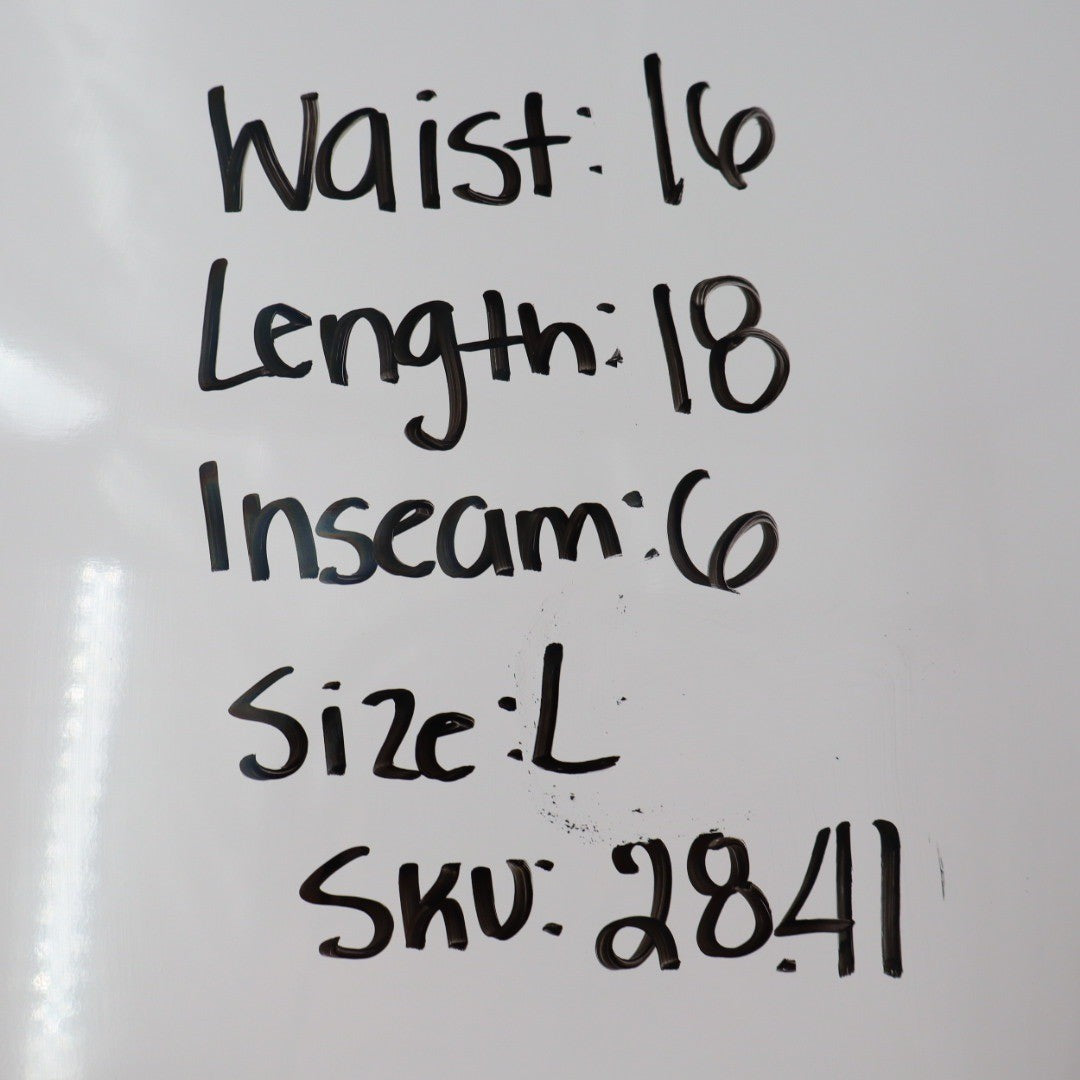 Waist: 16
Length: 18
Inseam: 6
Size: L
SKU: 28.41